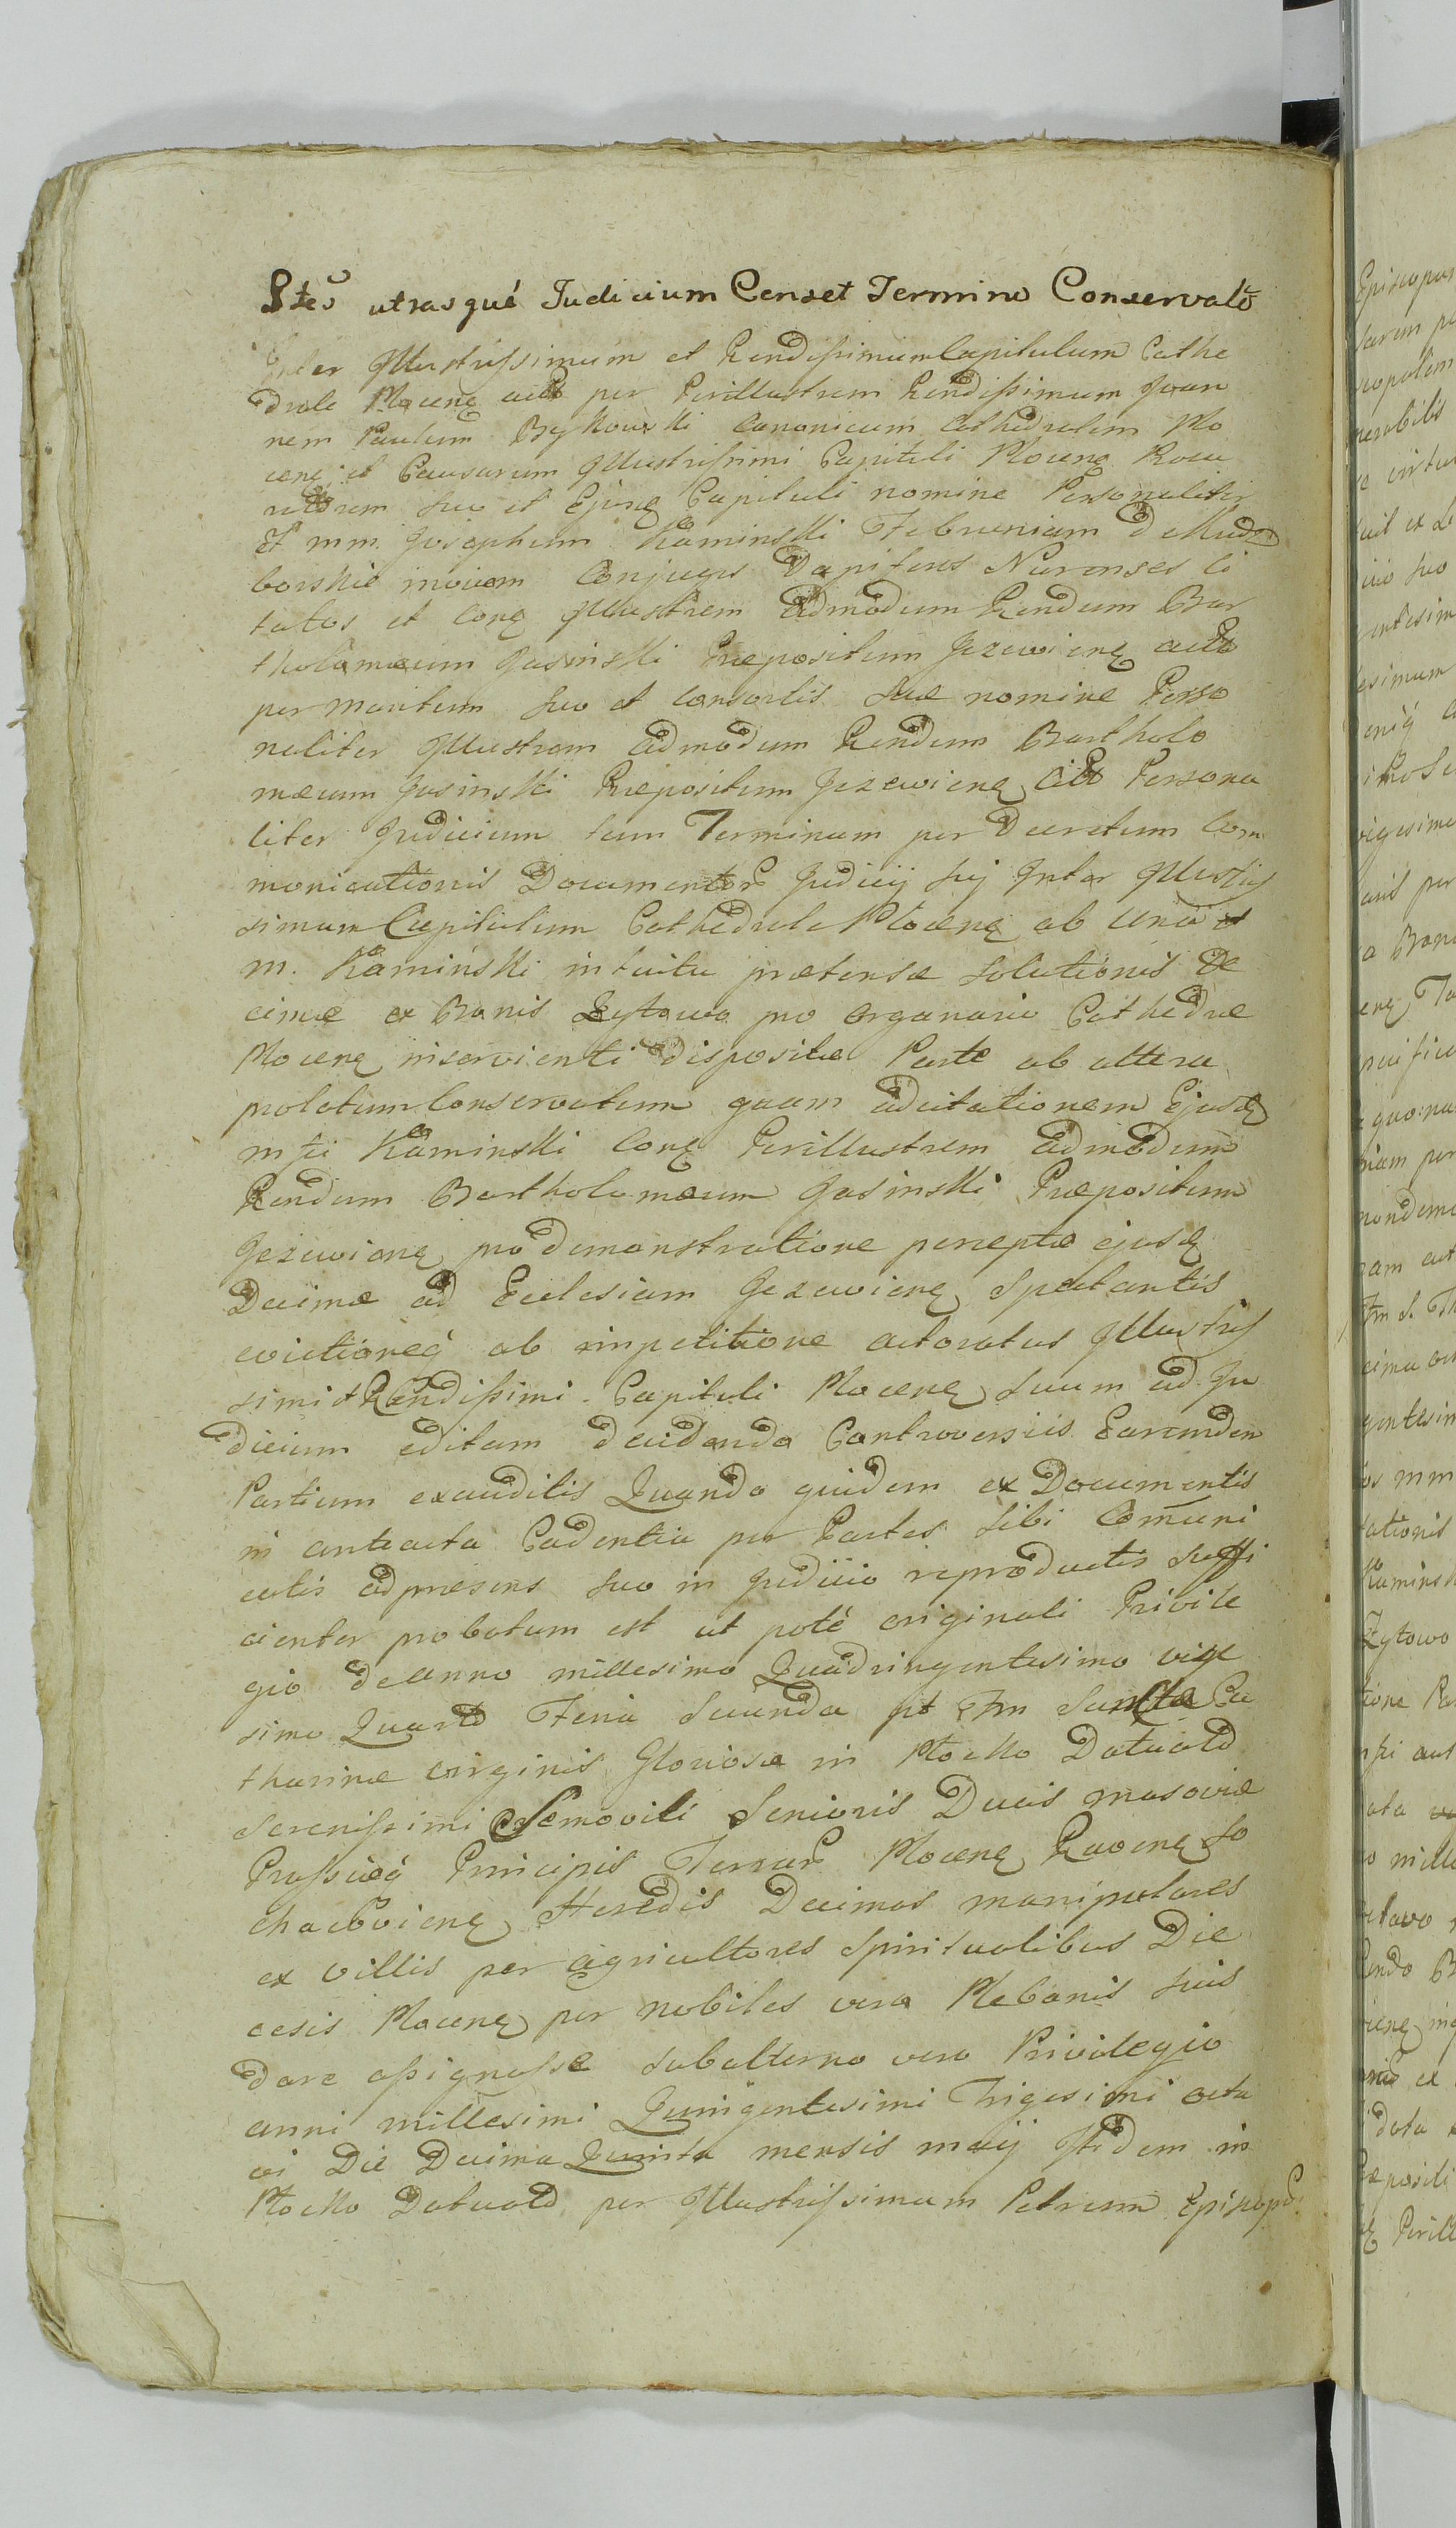 Ptes utrasque Judicium Censet Termino Conservato
Inter Illustrissimum et Rendissimum Capitulum Cathe
drale Plocen actor per Perillustrem Rendissimum Joan
nem Paulum Bykowski Canonicum Cathedralem Plo
cen et Causarum Illustrissimi Capituli Plocen
suo et Ejusq Capituli nomine Personaliter
Et mm. Josephum Kaminski Febroniam de
borskie invicem Conjuges Dapiferos Nurenses Ci
tatos et Conq Illustrem admodum Rendum Bar
tholamæum Jasinski Præpositum Jezewienq
per maritum suo et Consortis suæ nomine Perso
naliter Illustrem admodum Rendum Bartholo
mæum Jasinski Præpositum Jezewienq Personа
liter Judicium tum Terminum per Decretum Com
monicationis Documentor Judicij sij Inter Illustris
simum Capitulum Cathedrale Plocenq ab una et
m. Kaminski intuitu prætensæ solutionis De
cimæ ex Bonis Zytowo pro Organario Cathedræ
Plocenq inservienti dispositæ Parte ab altera
prolatum Conservatum quam adcitationem Ejusq
mfci Kaminski Conq Perillustrem admodum
Rendum Bartholomæum Jasinski Præpositum
Jezewienq pro demonstratione perceptæ ejusq
Decimæ ad Ecclesiam Jezewienq Spectantis
evictioneq ab impetitione actoratus Illustris
simi et Rendissimi Capituli Plocenq suum ad Ju
dicium editam decidendo Controversiis Earumdem
Partium exauditis Quando quidem ex Documentis
in anteacta Cadentia per Partes sibi Comuni
catis adpræsens suo in Judicio reproductis suffi
cienter probatum est ut poté originali Privile
gio de anno millesimo Quadringentesimo vige
simo Quarto Feria Secunda pt Ftm Sanctæ Ca
tharinæ virginis Gloriosæ in Plocko Datuato
Serenissimi Semoviti Senioris Ducis masoviæ
Prussiæq Principis Terrar Plocenq Ravenq So
chaczovienq Heredis Decimas manipulares
ex villis per agricultores Spiritualibus Die
cesis Plocenq per nobiles vero Plebanis suis
dare assignasse subalterno vero Privilegio
anni millesimi Quingentesimi Trigesimi octa
vi Die Decima Quinta mensis maij Itidem in
Plocko Datuato per Illustrissimum Petrum Episcopu